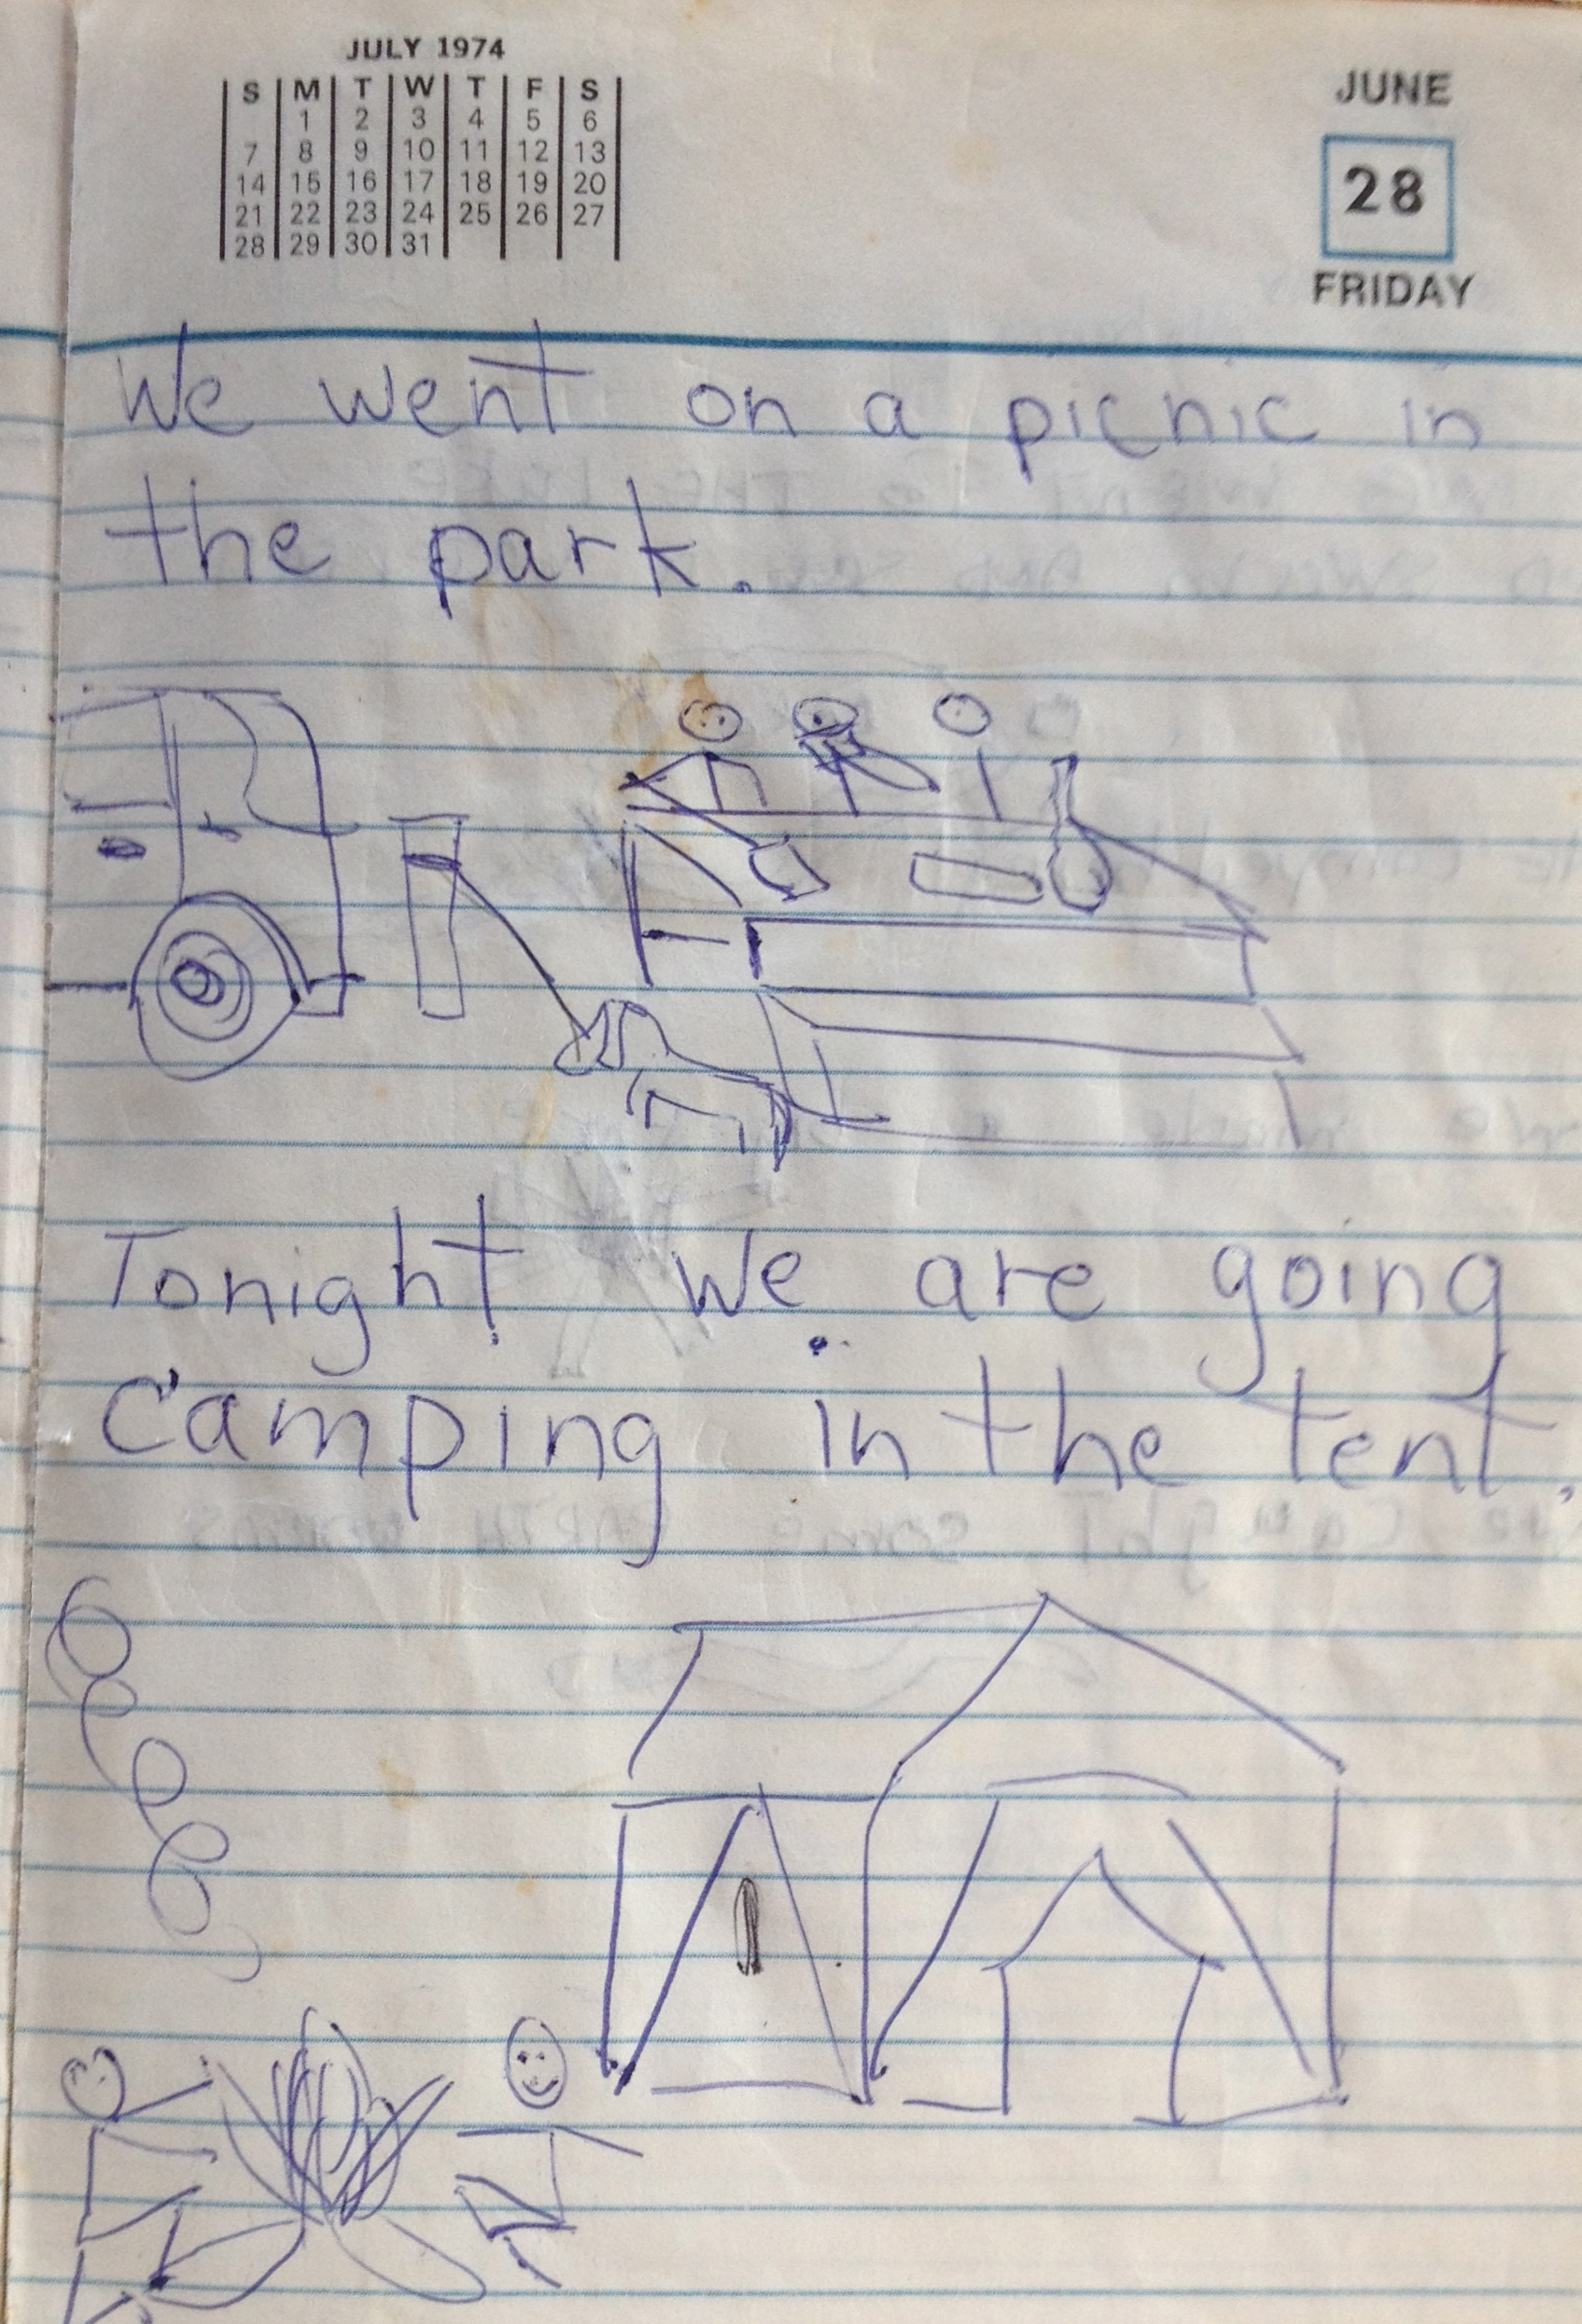 JULY 1974
S M T W T F S
1 2 3 4 5 6
7 8 9 10 11 12 13
14 15 16 17 18 19 20
21 22 23 24 25 26 27
28 29 30 31
JUNE
28
FRIDAY
We went on a picnic in
the park.
Tonight we are going
Camping in the tent.